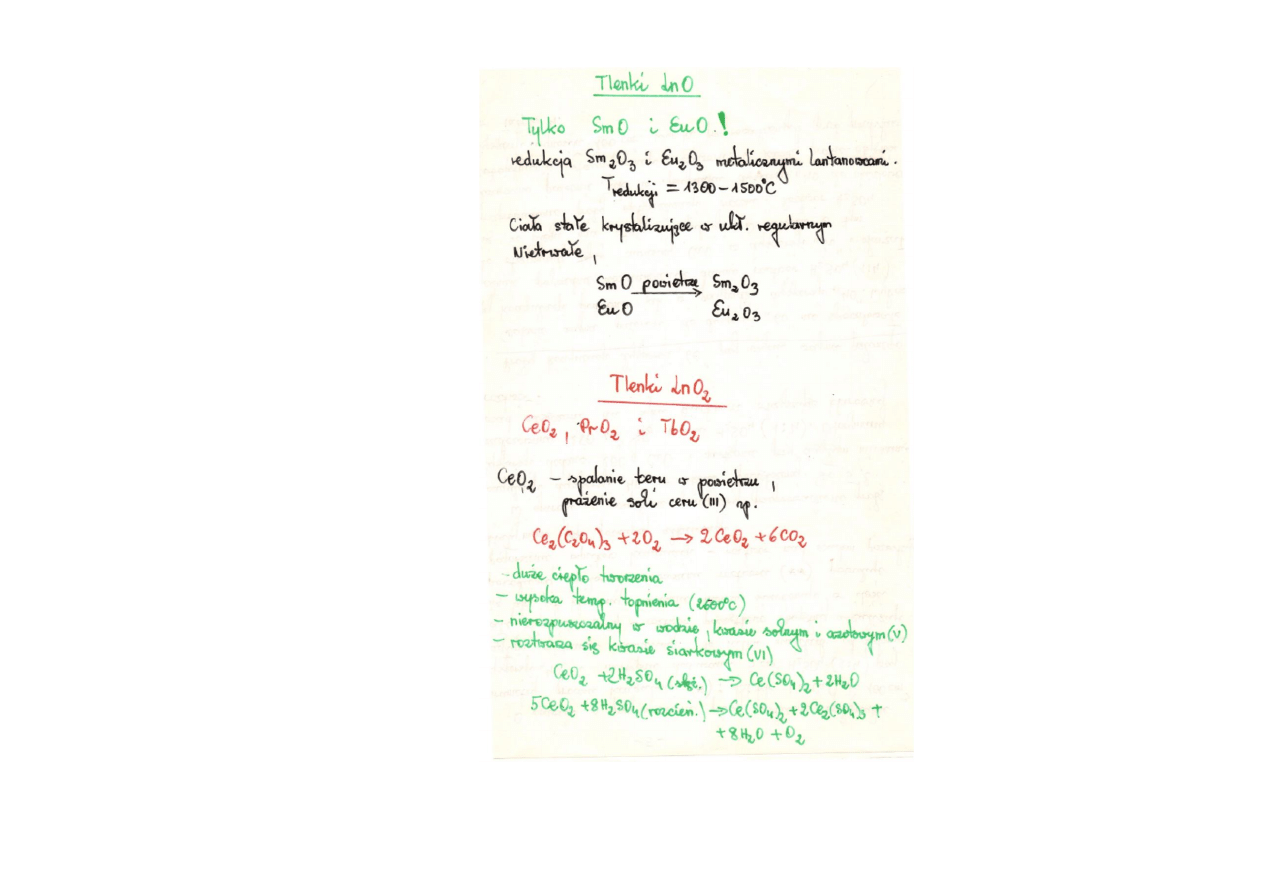 Tlenki LnO
Tylko SmO i EuO!
redukcja Sm₂O₃ i Eu₂O₃ metalicznymi lantanowcami.
Tredukcji = 1300 – 1500°C
Ciała stałe krystalizujące w ukł. regularnym
Nietrwałe,
SmO powietrze → Sm₂O₃
EuO Eu₂O₃
Tlenki LnO₂
CeO₂, PrO₂ i TbO₂
CeO₂ – spalanie ceru w powietrzu,
prażenie soli ceru (III) np.
Ce₂(C₂O₄)₃ + 2O₂ → 2CeO₂ + 6CO₂
- duże ciepło tworzenia
- wysoka temp. topnienia (2600°C)
- nierozpuszczalny w wodzie, kwasie solnym i azotowym (V)
- roztwarza się kwasie siarkowym (VI)
CeO₂ + 2H₂SO₄ (stęż.) → Ce(SO₄)₂ + 2H₂O
5CeO₂ + 8H₂SO₄ (rozcień.) → Ce(SO₄)₂ + 2Ce₂(SO₄)₃ +
+ 8H₂O + O₂